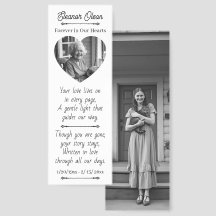 Eleanor Olson
Forever in Our Hearts
Your love lives on
in every page,
A gentle light that
guides our way.
Though you are gone,
your story stays,
Written in love
through all our days.